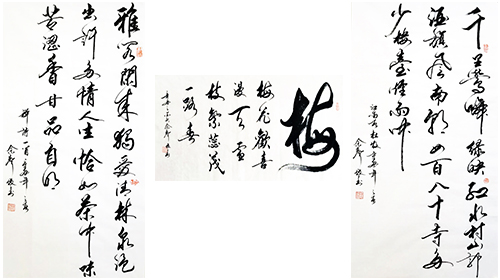 雅客閑來獨愛清林泉泡
出許多情人生恰如茶中味
苦澀香甘品自明
梅
梅花歡喜
漫天雪
枝繁蕊茂
一路春
千里鶯啼綠映紅水村山郭
酒旗風南朝四百八十寺多
少樓臺煙雨中
江南春杜牧